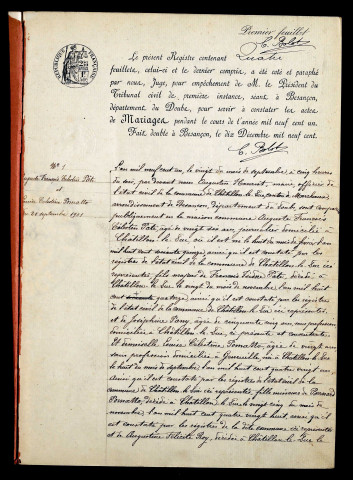 Premier feuillet
C. Bolot
Le présent Registre contenant Quatre
feuillets, celui-ci et le dernier compris, a été coté et paraphé
par nous, Juge, pour empêchement de M. le Président du
Tribunal civil de première instance, séant à Besançon,
département du Doubs, pour servir à constater les actes
de Mariages pendant le cours de l'année mil neuf cent un.
Fait, double à Besançon, le dix Décembre mil neuf cent.
C. Bolot
REPUBLIQUE FRANÇAISE
N° 1
Auguste François Célestin
et
Louise Célestine
20 septembre 1901
L'an mil neuf cent un, le vingt du mois de septembre à cinq heures
du soir, par devant nous Augustin, maire, officier de
l'état civil de la commune de Châtillon le Duc, canton de
arrondissement de Besançon, département du Doubs, sont comparus
publiquement en la maison commune Auguste François
Célestin, âgé de vingt six ans, domicilié à
Châtillon le Duc, où il est né le huit du mois de
mil huit cent soixante quinze ainsi qu'il est constaté par les
registres de l'état civil de la commune de Châtillon le Duc ici
représentés, fils majeur de François, décédé à
Châtillon le Duc le vingt du mois de novembre l'an mil huit
cent, ainsi qu'il est constaté par les registres
de l'état civil de la commune de Châtillon le Duc ici représentés
et de Joséphine, âgée de cinquante cinq ans,
domiciliée à Châtillon le Duc, ici présente et consentante
Et demoiselle Louise Célestine, âgée de vingt ans
sans profession domiciliée à, née à Châtillon le Duc
le huit du mois de septembre l'an mil huit cent quatre vingt un
ainsi qu'il est constaté par les registres de l'état civil de la
commune de Châtillon le Duc ici représentés, fille mineure de
décédé à Châtillon le Duc le vingt cinq du mois de
novembre l'an mil huit cent quatre vingt huit, ainsi qu'il
est constaté par les registres de la dite commune ici représentés
et de Augustine, décédée à Châtillon le Duc le